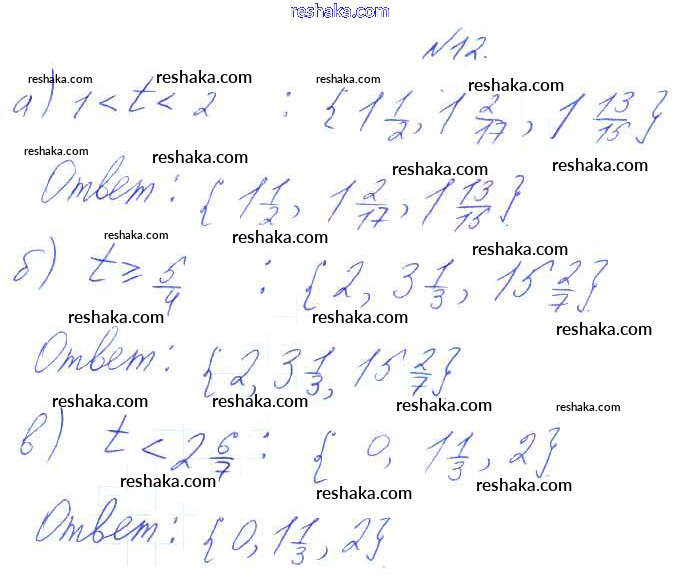 reshaka.com
№12.
reshaka.com reshaka.com reshaka.com reshaka.com
а) 1 < t < 2 : {1 1/2, 1 2/17, 1 13/15}
reshaka.com reshaka.com reshaka.com reshaka.com
Ответ: {1 1/2, 1 2/17, 1 13/15}
reshaka.com reshaka.com reshaka.com
б) t ≥ 5/4 : {2, 3 1/3, 15 2/7}
reshaka.com reshaka.com reshaka.com
Ответ: {2, 3 1/3, 15 2/7}
reshaka.com reshaka.com reshaka.com reshaka.com
в) t < 2 6/7 : {0, 1 1/3, 2}
reshaka.com reshaka.com reshaka.com
Ответ: {0, 1 1/3, 2}